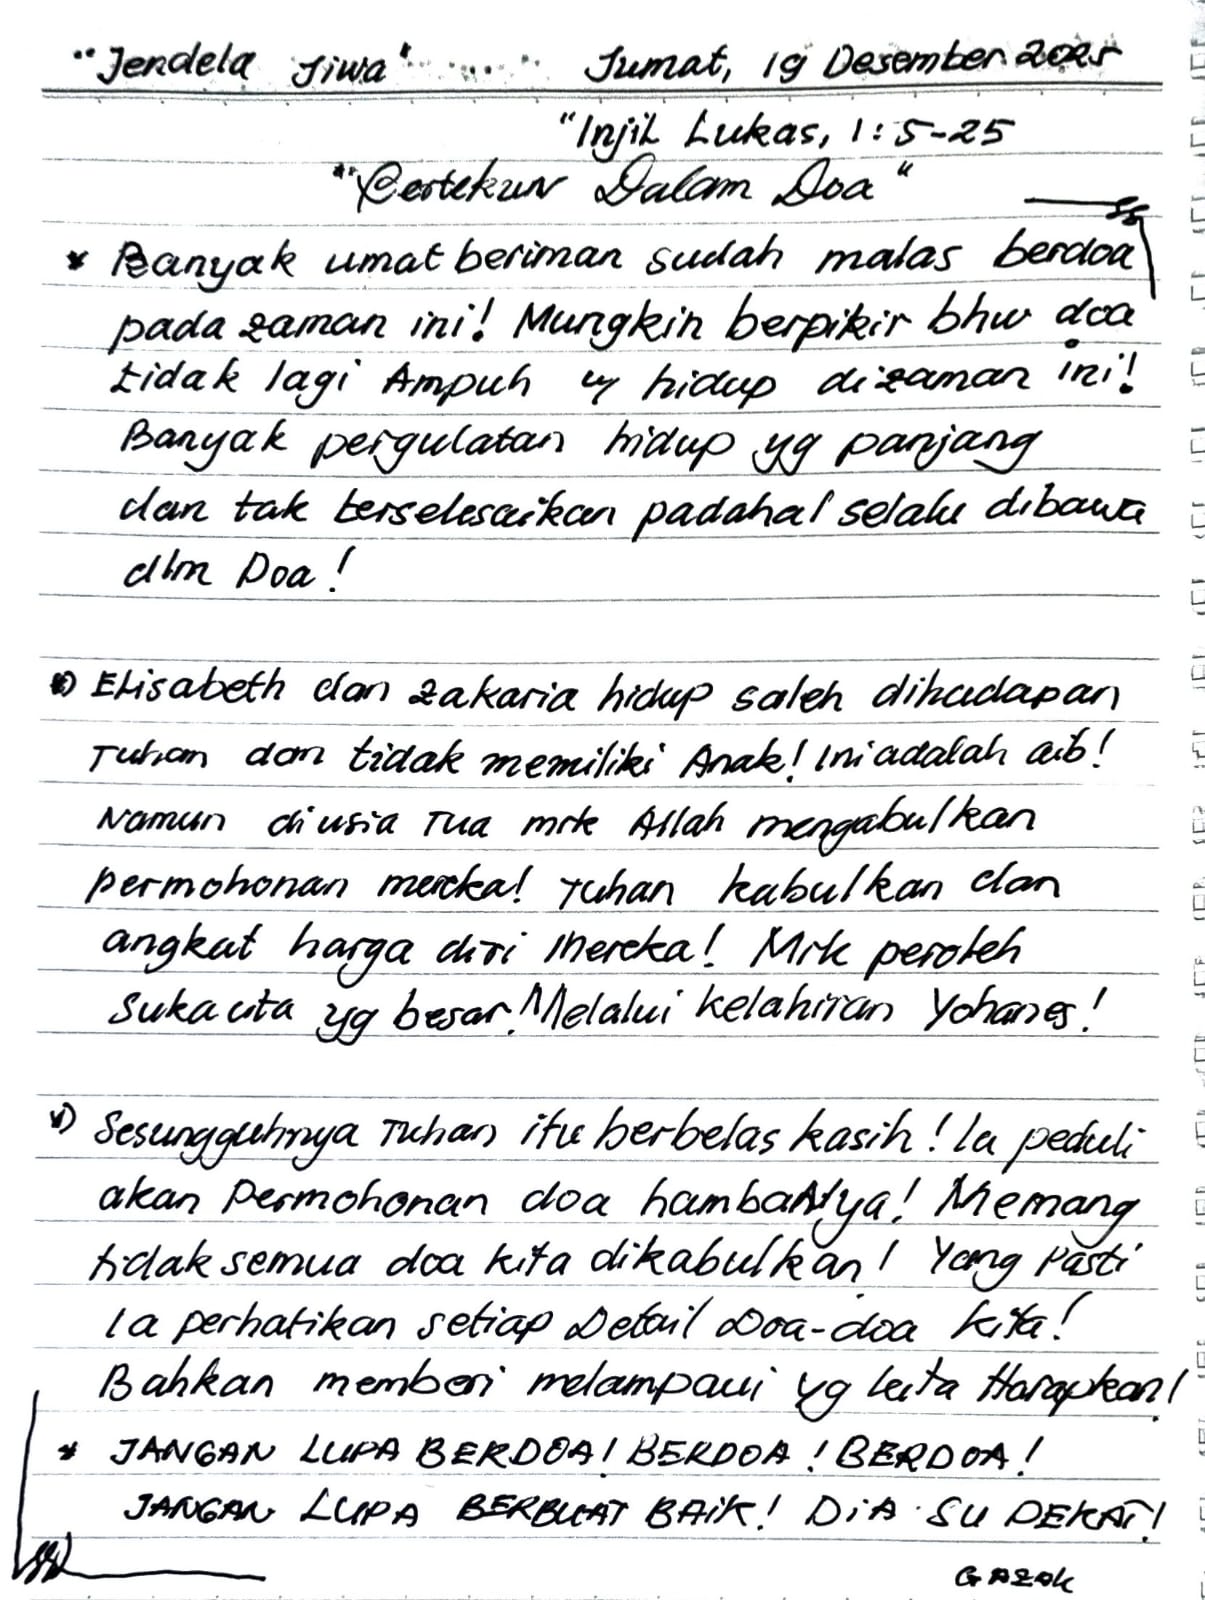 "Jendela Jiwa" Jumat, 19 Desember 2025
"Injil Lukas, 1:5-25
"Bertekun Dalam Doa"
* Banyak umat beriman sudah malas berdoa
pada zaman ini! Mungkin berpikir bhw doa
tidak lagi Ampuh hidup dizaman ini!
Banyak pergulatan hidup yg panjang
dan tak terselesaikan padahal selalu dibawa
dlm Doa!
*) Elisabeth dan Zakaria hidup saleh dihadapan
Tuhan dan tidak memiliki Anak! Ini adalah aib!
Namun diusia Tua mrk Allah mengabulkan
permohonan mereka! Tuhan kabulkan dan
angkat harga diri Mereka! Mrk peroleh
Sukacita yg besar! Melalui kelahiran Yohanes!
*) Sesungguhnya Tuhan itu berbelas kasih! Ia peduli
akan Permohonan doa hambaNya! Memang
tidak semua doa kita dikabulkan! Yang Pasti
Ia perhatikan setiap Detail Doa-doa kita!
Bahkan memberi melampaui yg kita Harapkan!
* JANGAN LUPA BERDOA! BERDOA! BERDOA!
JANGAN LUPA BERBUAT BAIK! DIA SU DEKAT!
GAZOK